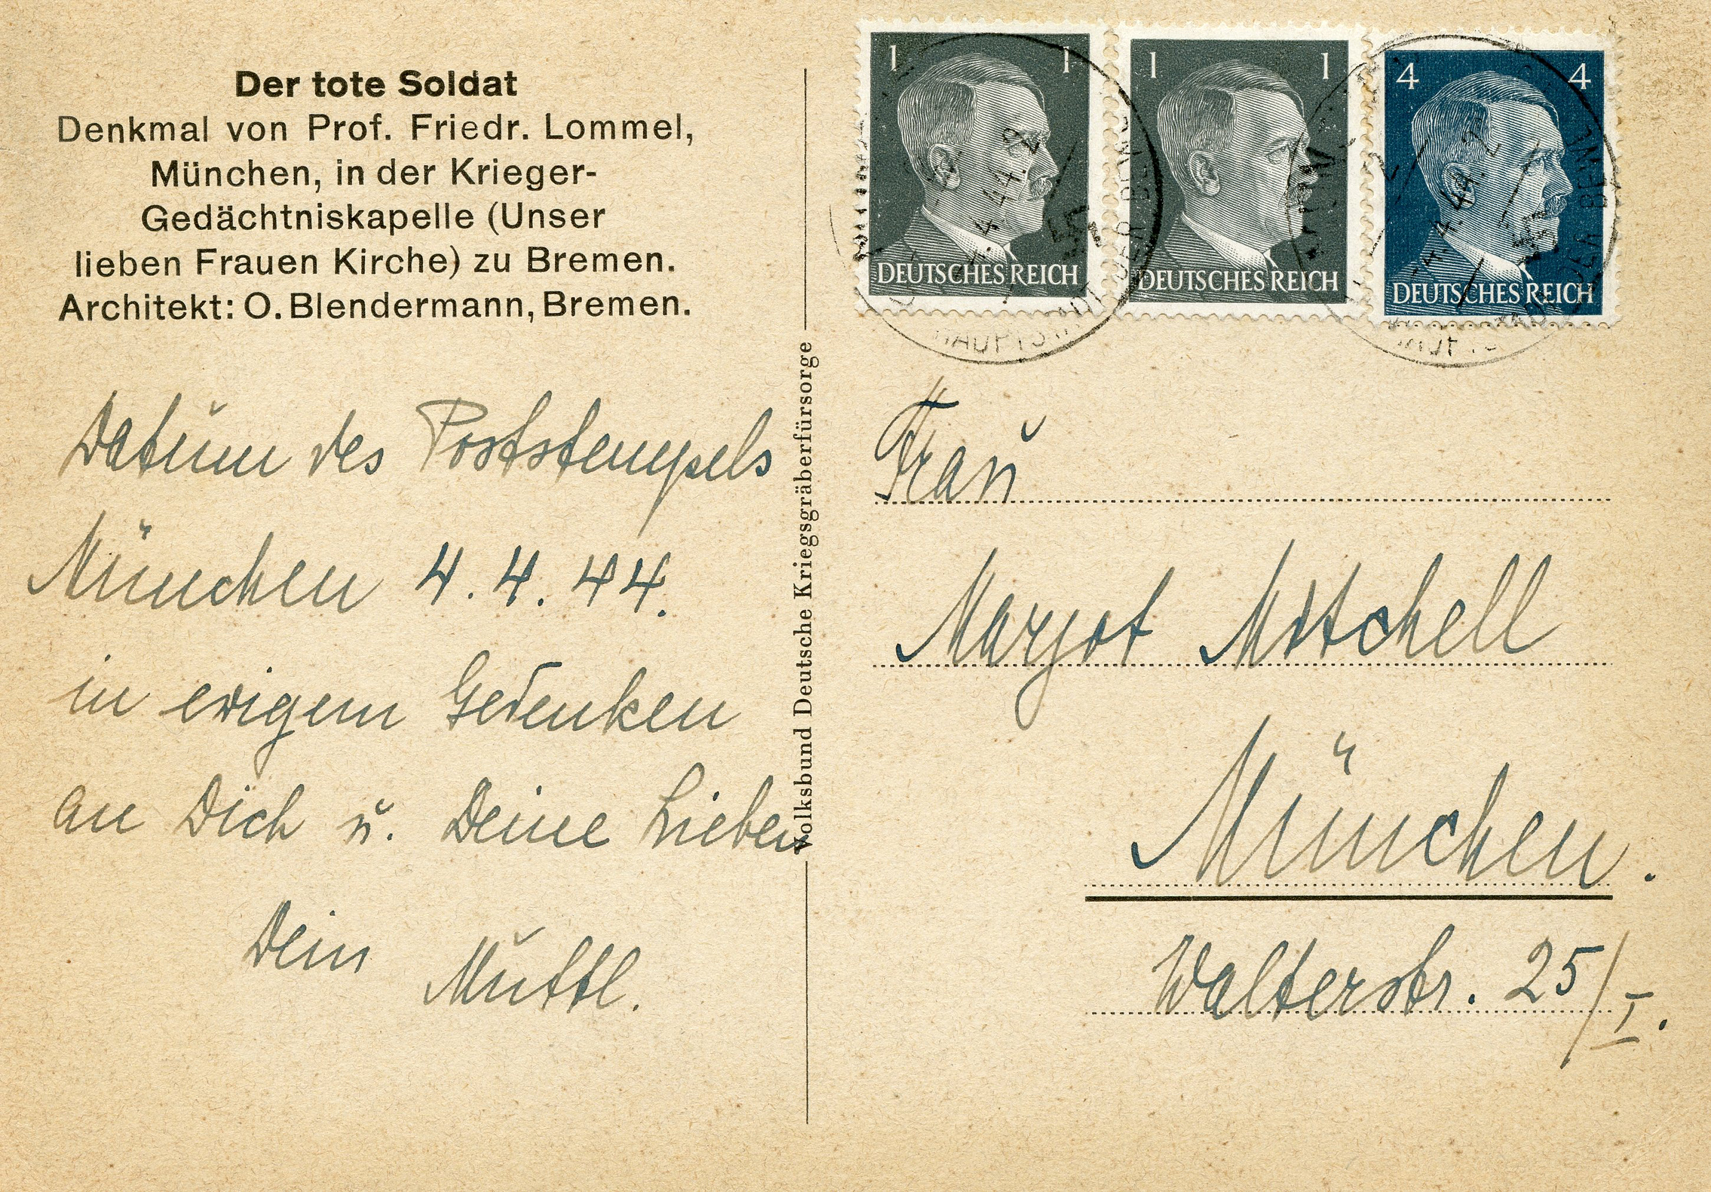 Der tote Soldat
Denkmal von Prof. Friedr. Lommel,
München, in der Krieger-
Gedächtniskapelle (Unser
lieben Frauen Kirche) zu Bremen.
Architekt: O. Blendermann, Bremen.
Datum des Poststempels
München 4.4.44.
in ewigem Gedenken
an Dich u. Deine Lieben
Dein Muttl.
Volksbund Deutsche Kriegsgräberfürsorge
1 1
DEUTSCHES REICH
1 1
DEUTSCHES REICH
4 4
DEUTSCHES REICH
4.44.
HAUPTSTADT DER BEWEG
4.44.
DER BEWE
Frau
Margot Mitchell
München.
Walterstr. 25/I.